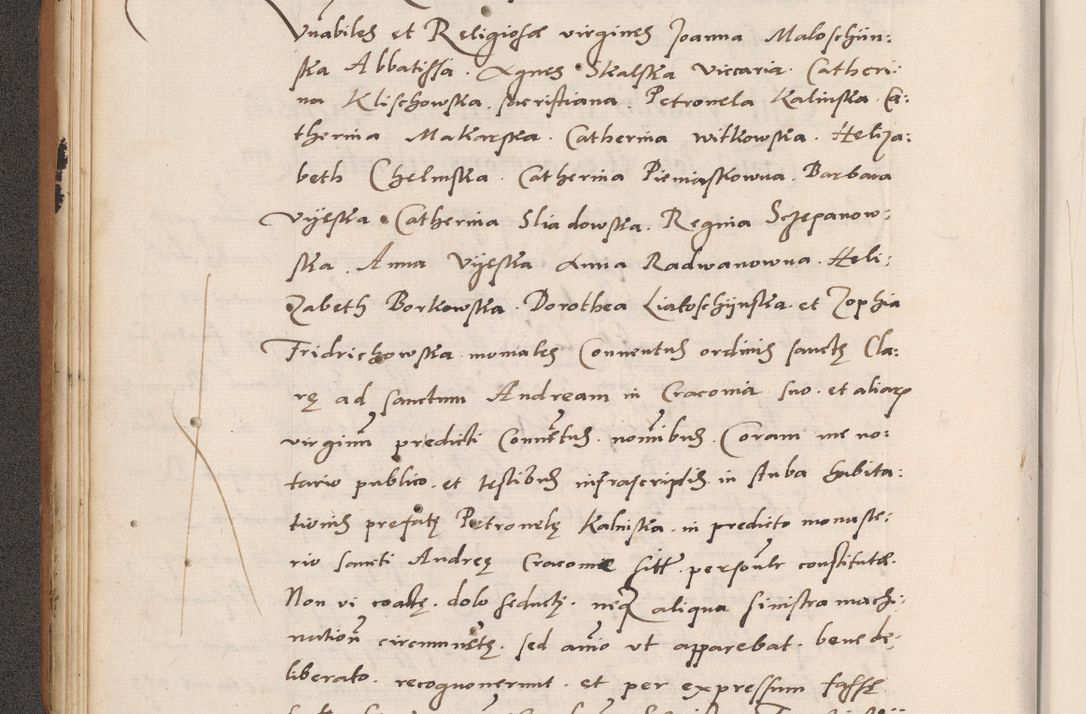 Vnabiles et Religiosæ virgines Joanna Maloschin:
ska Abbatissa . Agnes Skalska Viccaria . Catheri:
na Klischowska . sacristiana . Petronela Kalinska . Ca:
therina Makarska . Catherina witkowska . Heliza:
beth Chelmska . Catherina Pieniaskowna . Barbara
Vijeska Catherina Sliadowska . Regina Sczepanow:
ska . Anna Vijeska Anna Radwanowna . Heli:
zabeth Borkowska . Dorothea Liatoschijnska . et Zophia
Fridrichowska . moniales Conuentus ordinis sanctę Cla:
rę ad sanctum Andream in Cracouia suo . et aliarꝝ
virginū predicti Conuētus . noīnibus . Coram me no:
tario publico . et testibus infrascriptis . in stuba habita:
tionis prefatę Petronelę Kalniska . in predicto monaste:
rio sancti Andreę Cracouiæ sitt . personalr constitutæ .
Non vi coactę . dolo seductę . neqȝ aliqua sinistra machi:
nation circumuētę . sed aīo vt apparebat . bene de:
liberato . recognouerunt . et per expressum fassę